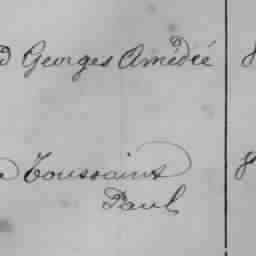 Georges Amédée
Toussaint
Paul